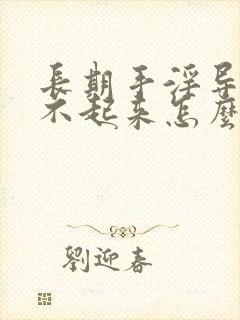 長期手淫导
不起来怎麼
劉迎春